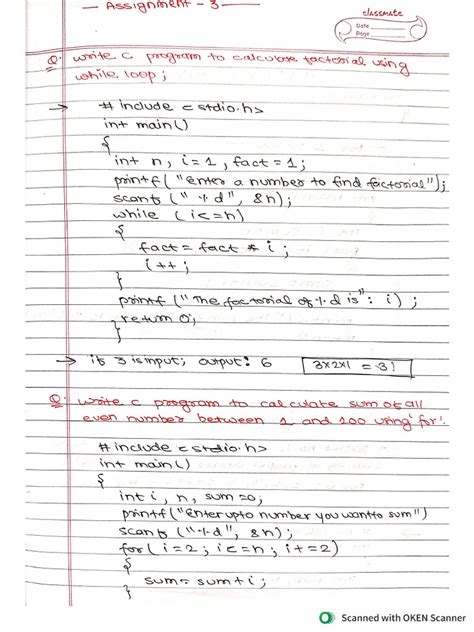 Assignment - 3
classmate
Date
Page
Q. write c program to calculate factorial using
while loop;
→ # include <stdio.h>
int main()
{
int n, i=1, fact=1;
printf("enter a number to find factorial");
scanf("%d", &n);
while (i<=n)
{
fact = fact * i;
i++;
}
printf ("The factorial of %d is": i);
return 0;
}
→ if 3 is input; output: 6 3x2x1 = 3!
Q. write c program to calculate sum of all
even number between 1 and 100 using 'for'.
# include <stdio.h>
int main()
{
int i, n, sum=0;
printf("Enter upto number you want to sum")
scanf("%d", &n);
for(i=2; i<=n; i+=2)
{
sum = sum+i;
}
Scanned with OKEN Scanner